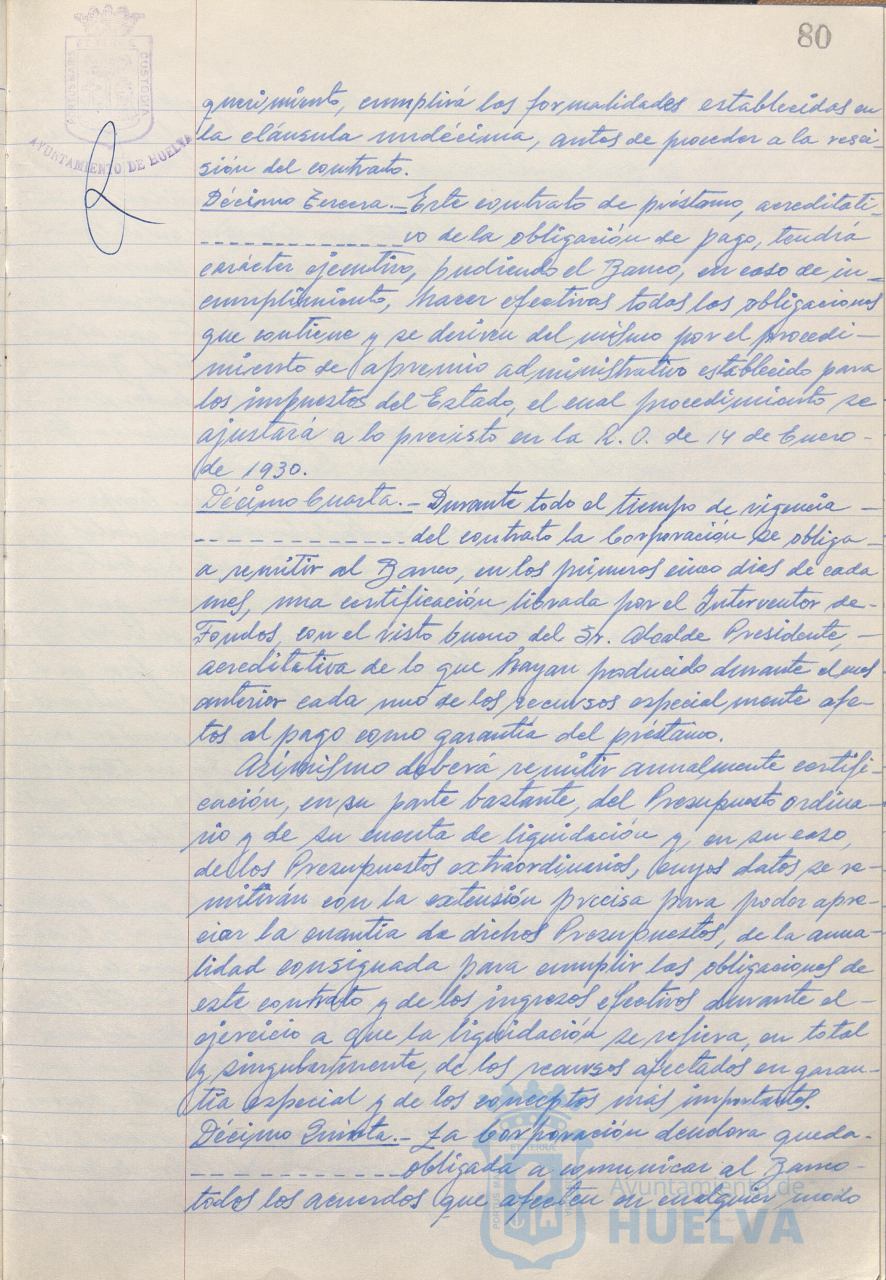 80
AYUNTAMIENTO DE HUELVA
querimiento, cumplirá las formalidades establecidas en
la cláusula undécima, antes de proceder a la resci-
sión del contrato.
Décimo Tercera.- Este contrato de préstamo, acreditati-
vo de la obligación de pago, tendrá
carácter ejecutivo, pudiendo el Banco, en caso de in-
cumplimiento, hacer efectivas todas las obligaciones
que contiene y se deriven del mismo por el procedi-
miento de apremio administrativo establecido para
los impuestos del Estado, el cual procedimiento se
ajustará a lo previsto en la R. O. de 14 de Enero-
de 1930.
Décimo Cuarta.- Durante todo el tiempo de vigencia -
del contrato la Corporación se obliga-
a remitir al Banco, en los primeros cinco dias de cada
mes, una certificación librada por el Interventor de-
Fondos, con el visto bueno del Sr. Alcalde Presidente, -
acreditativa de lo que hayan producido durante el mes
anterior cada uno de los recursos especialmente afec-
tos al pago como garantía del préstamo.
Asimismo deberá remitir anualmente certifi-
cación, en su parte bastante, del Presupuesto ordina-
rio y de su cuenta de liquidación y, en su caso,
de los Presupuestos extraordinarios, cuyos datos se re-
mitirán con la extensión precisa para poder apre-
ciar la cuantia de dichos Presupuestos, de la anua-
lidad consignada para cumplir las obligaciones de
este contrato y de los ingresos efectivos durante el -
ejercicio a que la liquidación se refiera, en total
y singularmente, de los recursos afectados en garan-
tía especial y de los conceptos más importantes.
Décimo Quinta.- La Corporación deudora queda-
obligada a comunicar al Banco-
todos los acuerdos que afecten en cualquier modo
Ayuntamiento de
HUELVA